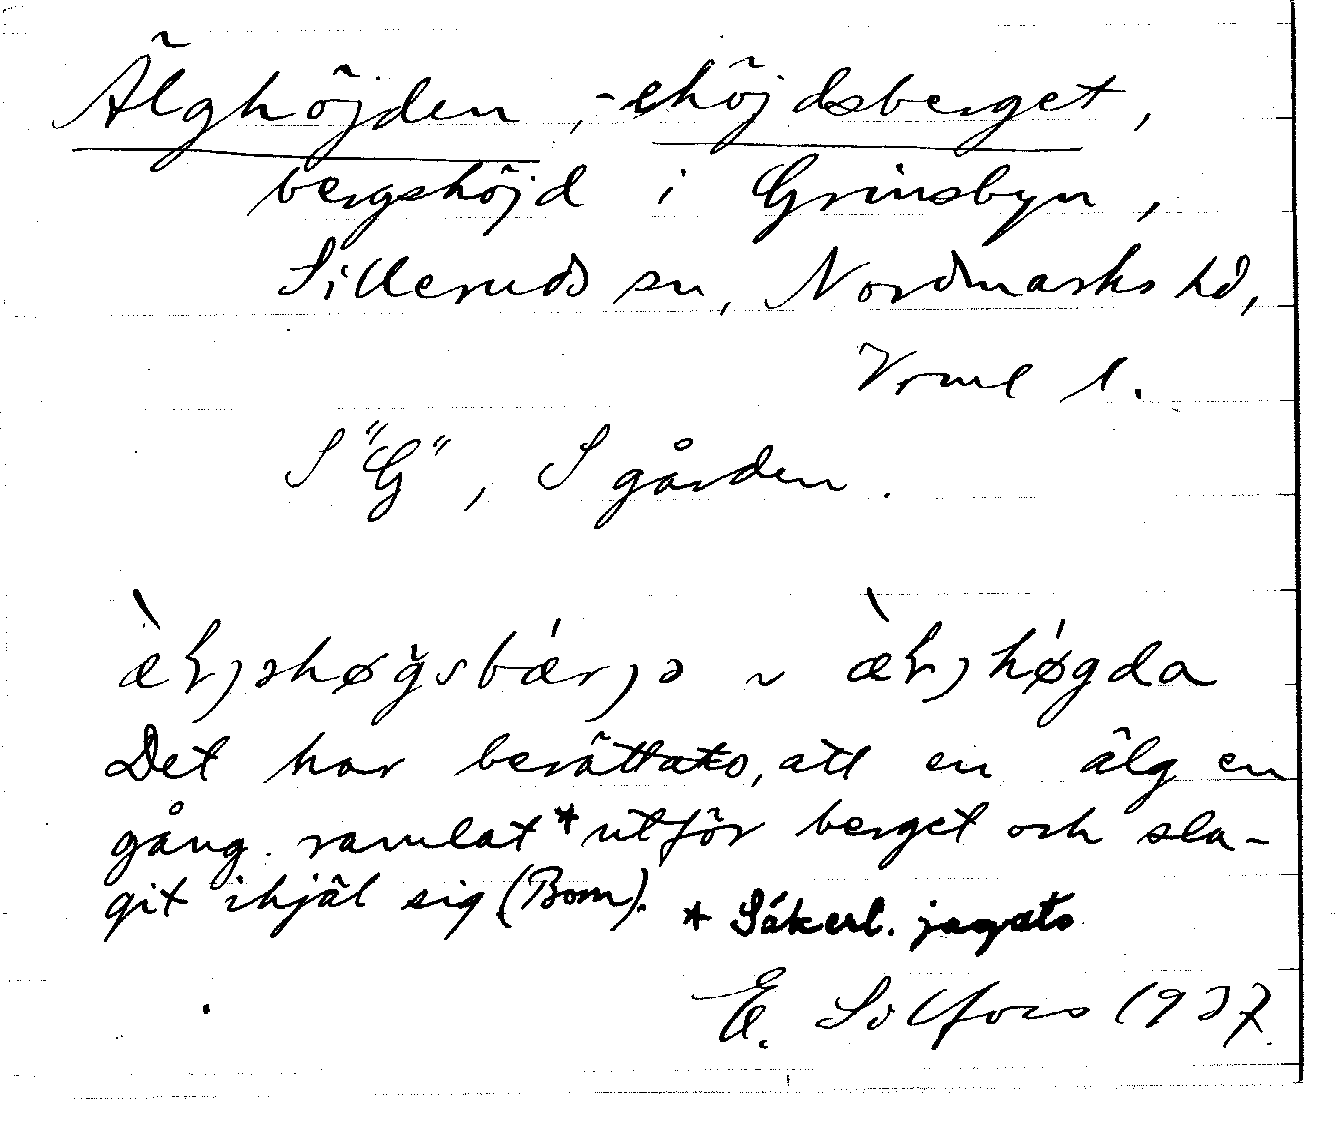 Älghöjden, -ehöjdsberget,
bergshöjd i Grinsbyn,
Silleruds sn, Nordmarks hd,
Vrml l.
S "G", S gården.
Det har berättats, att en älg en
gång ramlat * utför berget och sla-
git ihjäl sig (Bom).
* Säkerl. jagats
E. Silfors 1937